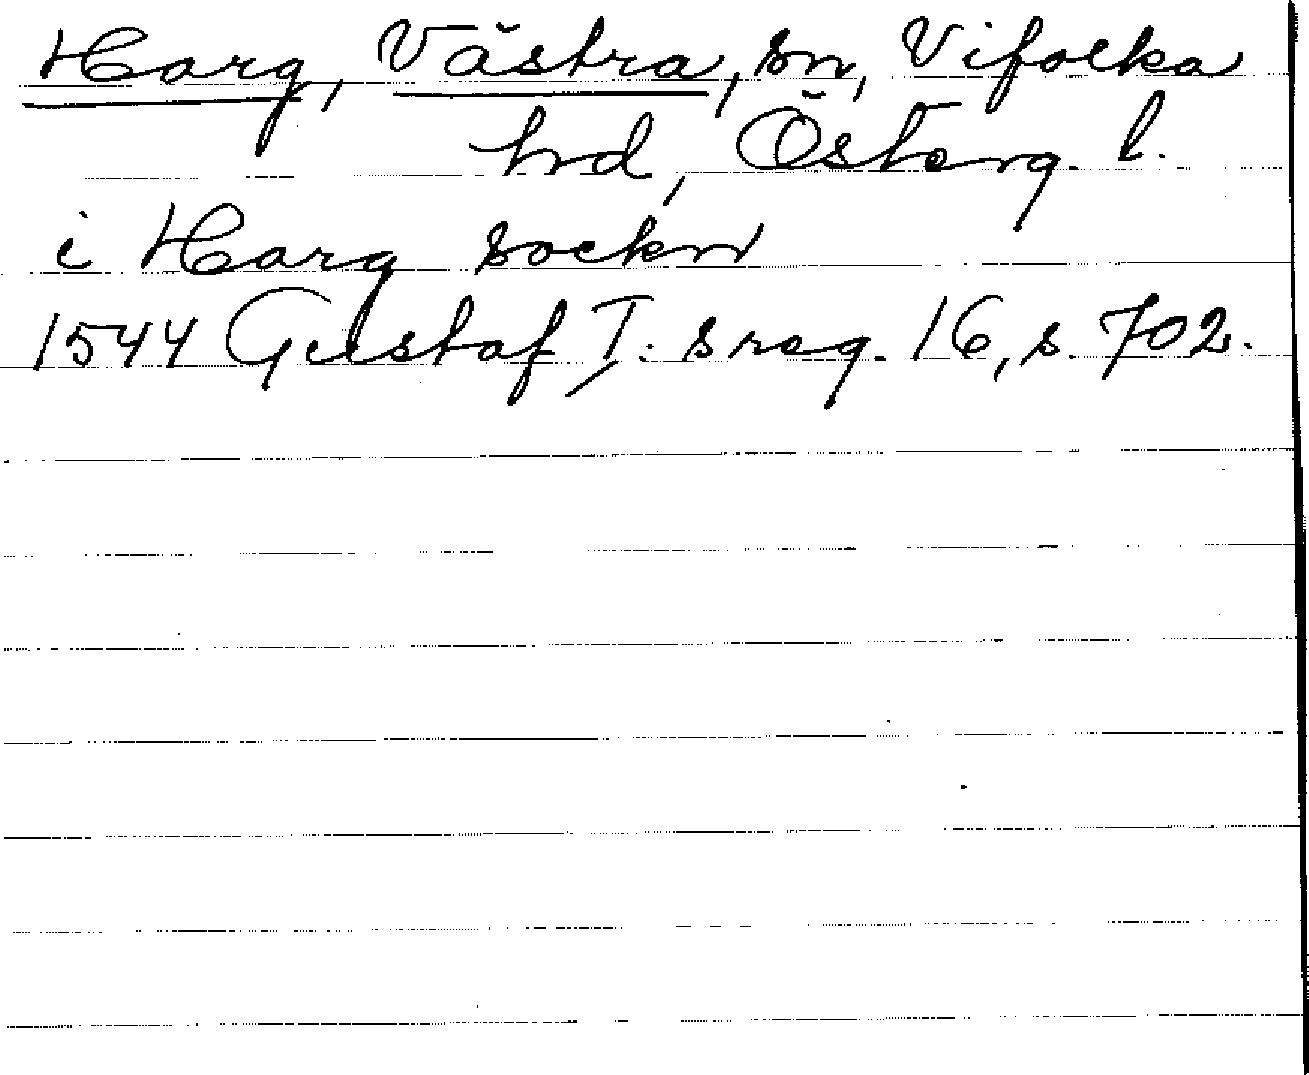 Harg, Västra, sn, Vifolka
hrd, Österg. l.
i Harg sockn
1544 Gustaf I: s reg. 16, s. 702.